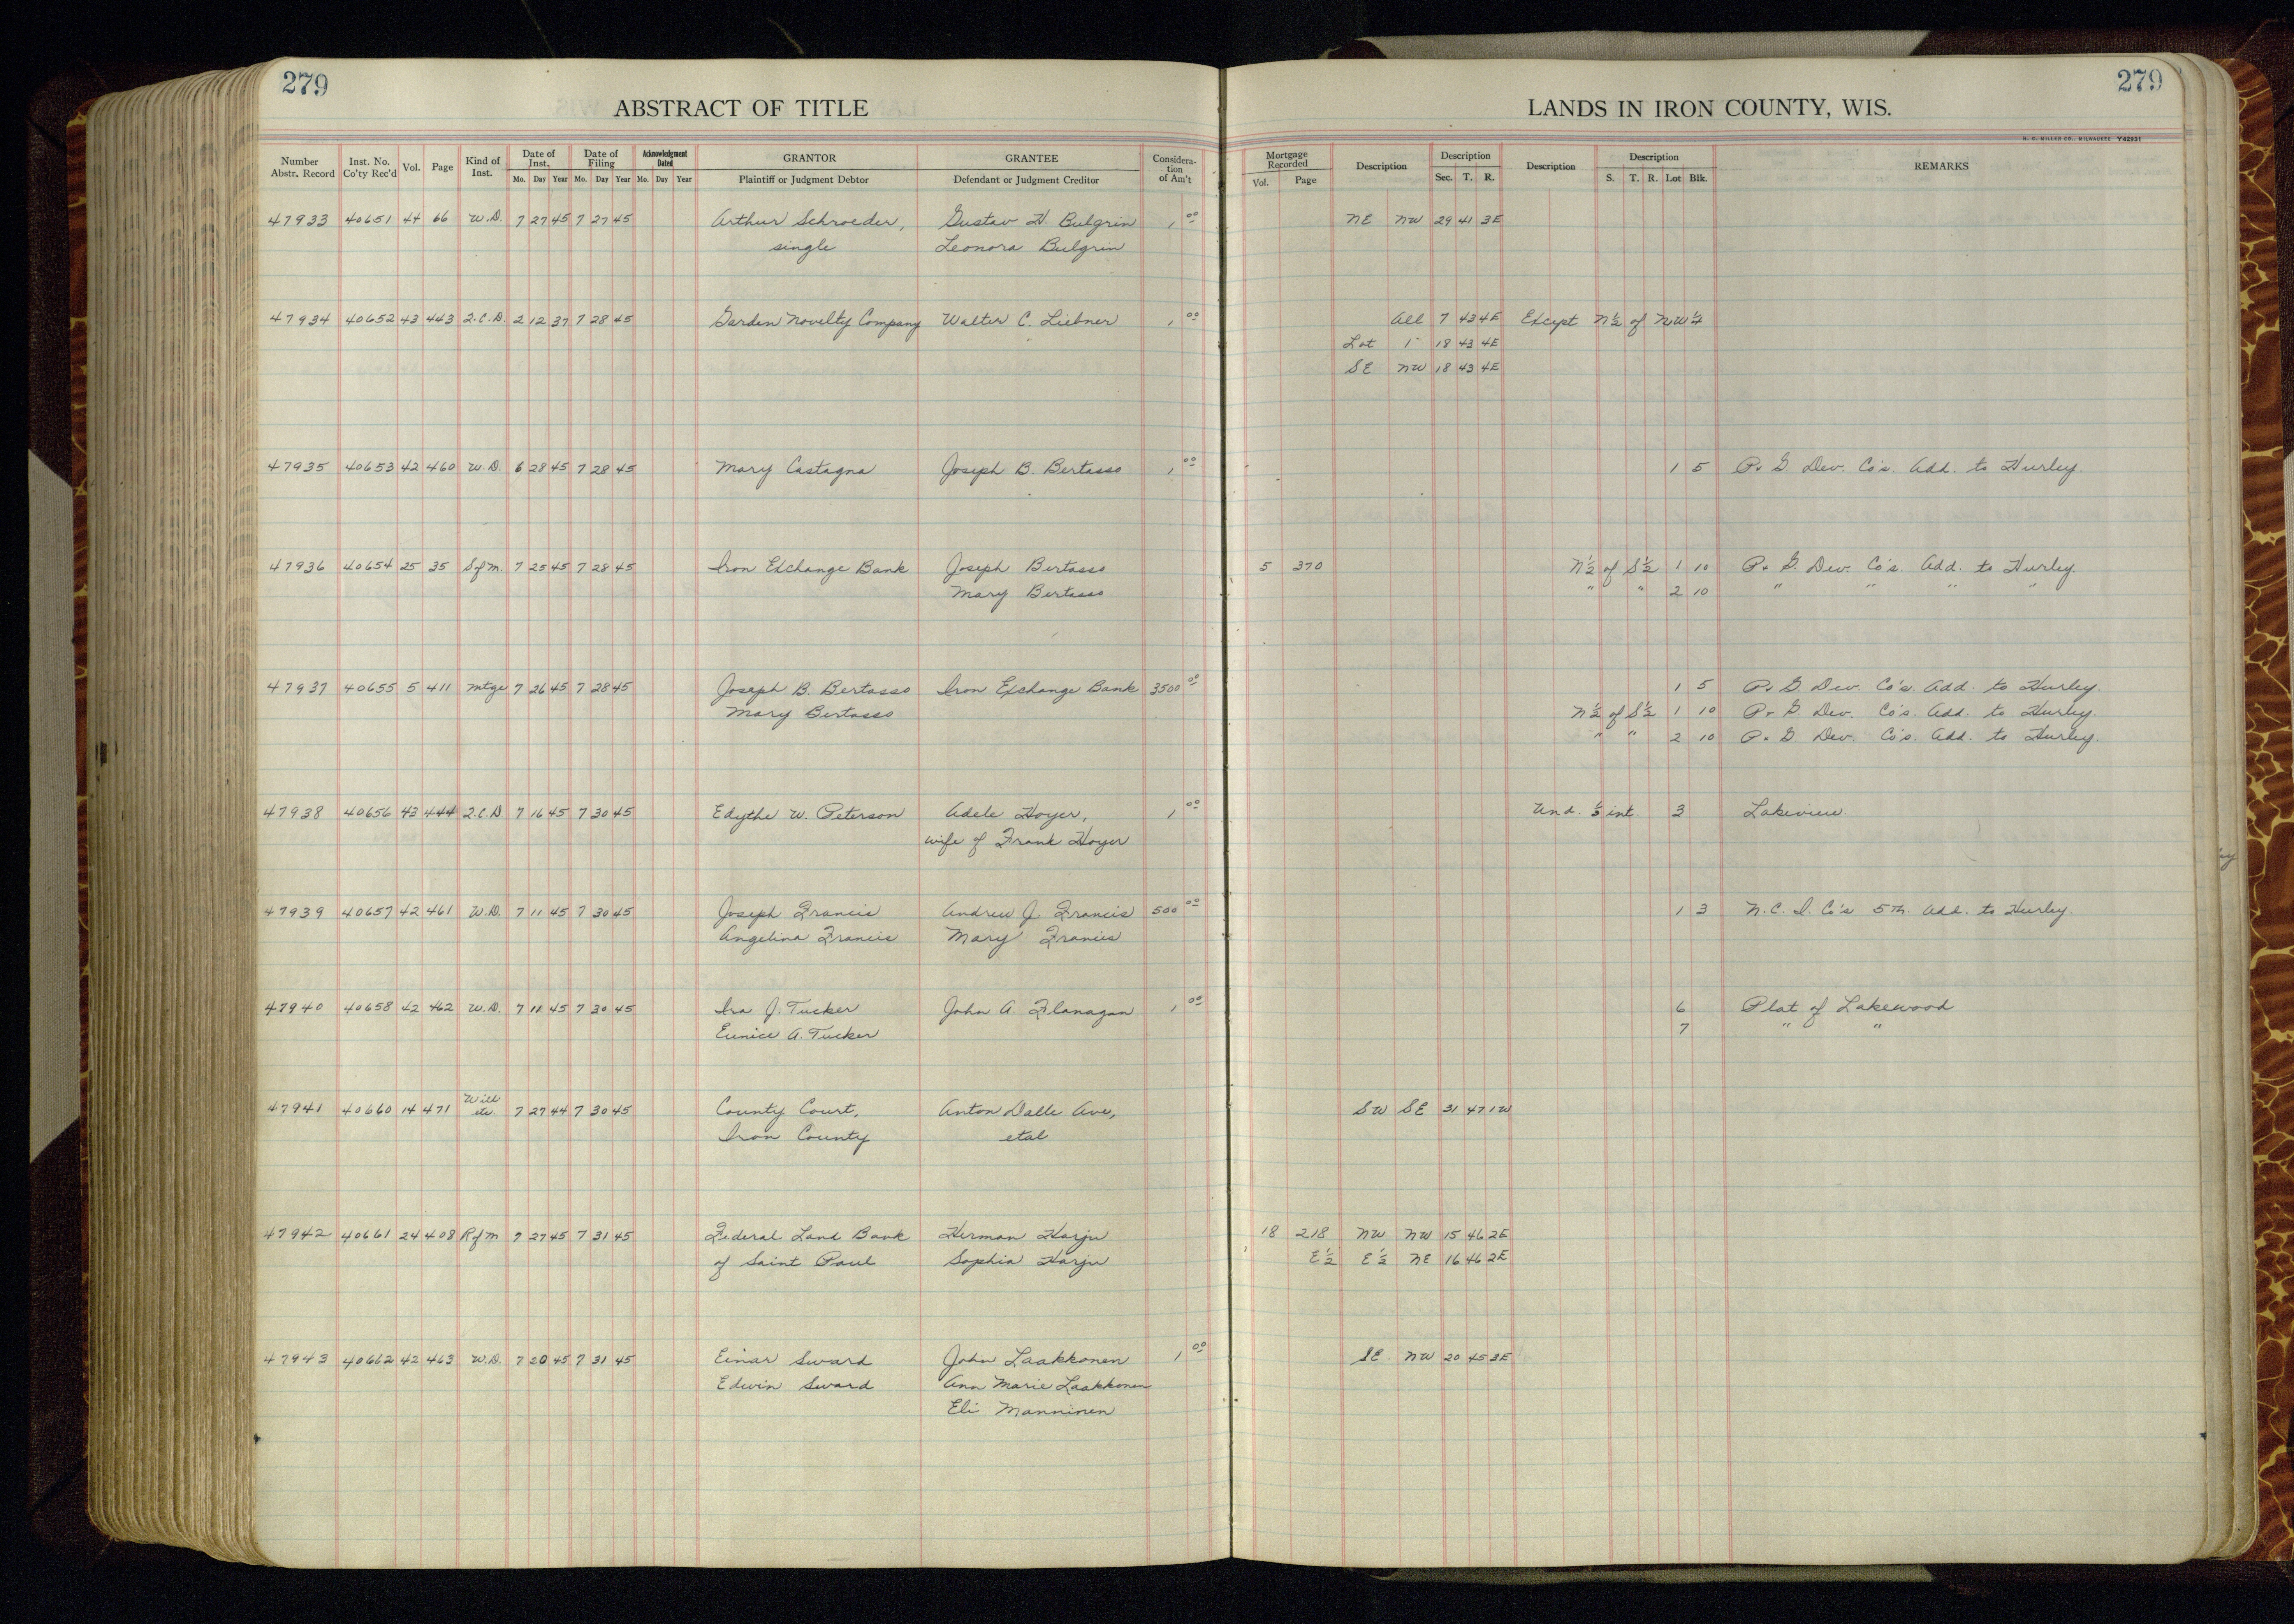 279
ABSTRACT OF TITLE
LANDS IN IRON COUNTY, WIS.
279
H. C. MILLER CO., MILWAUKEE Y42931
Number Abstr. Record | Inst. No. Co'ty Rec'd | Vol. | Page | Kind of Inst. | Date of Inst. Mo. Day Year | Date of Filing Mo. Day Year | Acknowledgment Dated Mo. Day Year | GRANTOR Plaintiff or Judgment Debtor | GRANTEE Defendant or Judgment Creditor | Considera-tion of Am't | Mortgage Recorded Vol. Page | Description | Description Sec. T. R. | Description | Description S. T. R. Lot Blk. | REMARKS
47933 40651 44 66 W.D. 7 27 45 7 27 45 Arthur Schroeder, Gustav H. Bulgrin 1 00 NE NW 29 41 3E
single Leonora Bulgrin
47934 40652 43 443 Q.C.D. 2 12 37 7 28 45 Garden Novelty Company Walter C. Liebner 1 00 All 7 43 4E Except N½ of NW¼
Lot 1 18 43 4E
SE NW 18 43 4E
47935 40653 42 460 W.D. 6 28 45 7 28 45 Mary Castagna Joseph B. Bertasso 1 00 1 5 P. & G. Dev. Co's. Add. to Hurley.
47936 40654 25 35 SofM. 7 25 45 7 28 45 Iron Exchange Bank Joseph Bertasso 5 370 N½ of S½ 1 10 P. & G. Dev. Co's. Add. to Hurley.
Mary Bertasso " " 2 10 " " " "
47937 40655 5 411 Mtge 7 26 45 7 28 45 Joseph B. Bertasso Iron Exchange Bank 3500 00 1 5 P. & G. Dev. Co's. Add. to Hurley.
Mary Bertasso N½ of S½ 1 10 P. & G. Dev. Co's. Add. to Hurley.
" " 2 10 P. & G. Dev. Co's. Add. to Hurley.
47938 40656 43 444 Q.C.D 7 16 45 7 30 45 Edythe W. Peterson Adele Hoyer, 1 00 Und. int. 3 Lakeview.
wife of Frank Hoyer
47939 40657 42 461 W.D. 7 11 45 7 30 45 Joseph Francis Andrew J. Francis 500 00 1 3 N. C. I. Co's 5th. Add. to Hurley.
Angelina Francis Mary Francis
47940 40658 42 462 W.D. 7 11 45 7 30 45 Ira J. Tucker John A. Flanagan 1 00 6 Plat of Lakewood
Eunice A. Tucker 7 " "
47941 40660 14 471 Will etc 7 27 44 7 30 45 County Court, Anton Dalle Ave, SW SE 31 47 1W
Iron County etal
47942 40661 24 408 RofM 7 27 45 7 31 45 Federal Land Bank Herman Harju 18 218 NW NW 15 46 2E
of Saint Paul Sophia Harju E½ E½ NE 16 46 2E
47943 40662 42 463 W.D. 7 20 45 7 31 45 Einar Sward John Laakkonen 1 00 SE NW 20 45 3E
Edwin Sward Ann Marie Laakkonen
Eli Manninen